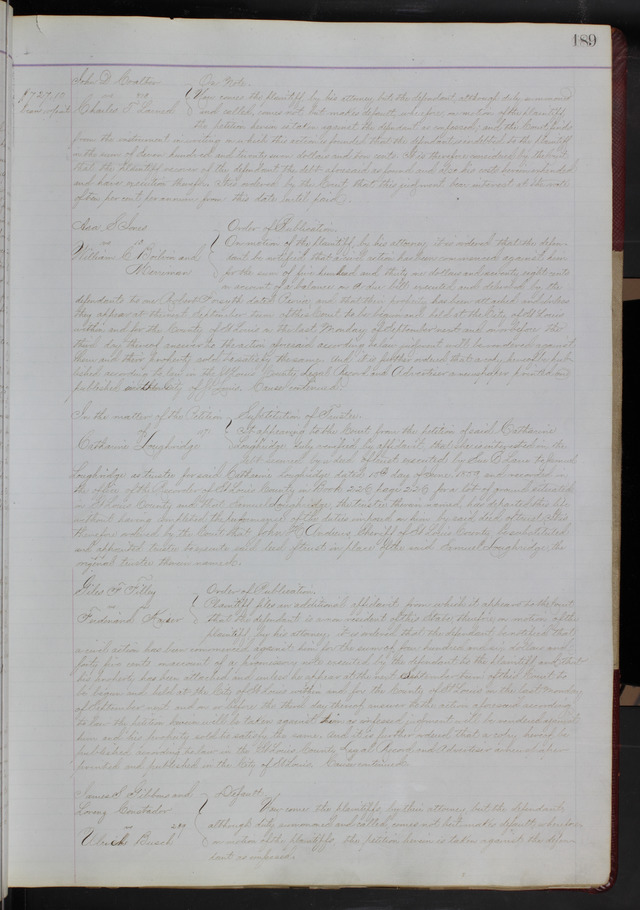 189
John D.
On Note
$727.10
vs
Charles T.
Now comes the plaintiff by his attorney but the defendant although duly summoned
and called, comes not but makes default, wherefore, on motion of the plaintiff,
the petition herein is taken against the defendant as confessed, and the Court finds
from the instrument in writing on which this action is founded that the defendant is indebted to the plaintiff
in the sum of seven hundred and twenty seven dollars and ten cents. It is therefore considered by the Court
that the Plaintiff recover of the defendant the debt aforesaid as found and also his costs herein expended
and have execution therefor. It is ordered by the Court that this judgment bear interest at the rate
of ten per cent per annum from this date until paid.
Order of Publication.
vs
William C. and
On motion of the Plaintiff, by his attorney it is ordered that the defen-
dants be notified that a civil action has been commenced against them
for the sum of five hundred and thirty six dollars and seventy eight cents
on account of a balance on a due bill executed and delivered by the
defendants to one Robert Forsyth dated and that their property has been attached and unless
they appear at the next September term of this Court to be begun and held at the City of St Louis
within and for the County of St Louis on the last Monday of September next and on or before the
third day thereof answer to the action aforesaid according to law judgment will be rendered against
them and their property sold to satisfy the same. And it is further ordered that a copy hereof be pub-
lished according to law in the St Louis County Legal Record and Advertiser a newspaper printed and
published in the City of St Louis. Cause continued.
In the matter of the Petition
of
Catharine Loughridge
Substitution of Trustee.
It appearing to the Court from the petition of said Catharine
Loughridge duly verified by affidavit that she is interested in the
debt secured by a deed of trust executed by to Samuel
Loughridge as trustee for said Catharine Loughridge dated 10th day of June 1859 and recorded in
the office of the Recorder of St Louis County in Book 226 page 229 for a lot of ground situated
in St Louis County and that Samuel Loughridge, the trustee therein named, has departed this life
without having completed the performance of the duties imposed on him by said deed of trust. It is
therefore ordered by the Court that John H. Andrews Sheriff of St Louis County be substituted
and appointed trustee to execute said deed of trust in place of the said Samuel Loughridge, the
original trustee therein named.
Giles F. Filley
vs
Ferdinand Kayser
Order of Publication.
Plaintiff files an additional affidavit from which it appears to the Court
that the defendant is a non resident of this State therefore on motion of the
plaintiff by his attorney it is ordered that the defendant be notified that
a civil action has been commenced against him for the sum of four hundred and six dollars and
forty five cents on account of a promissory note executed by the defendant to the plaintiff and that
his property has been attached and unless he appears at the next September term of this Court to
be begun and held at the City of St Louis within and for the County of St Louis on the last Monday
of September next and on or before the third day thereof answer to the action aforesaid according
to law the petition herein will be taken against him as confessed judgment will be rendered against
him and his property sold to satisfy the same. And it is further ordered that a copy hereof be
published according to law in the St Louis County Legal Record and Advertiser a newspaper
printed and published in the City of St Louis. Cause continued.
James S. Gibbons and
vs
Busch
Default.
Now comes the plaintiffs by their attorney but the defendant
although duly summoned and called, comes not but makes default, wherefore
on motion of the plaintiffs, the petition herein is taken against the defen-
dant as confessed.